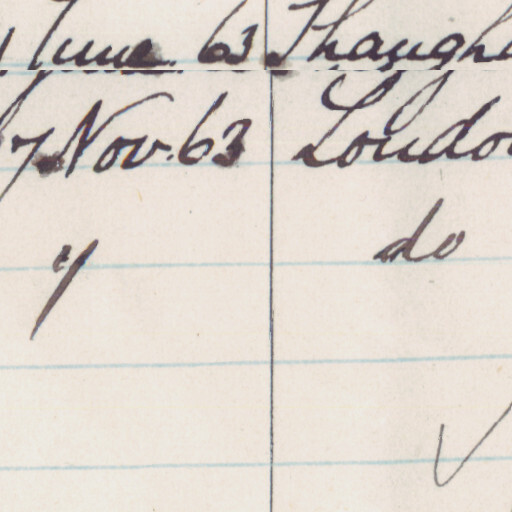 June 63 Shangh
7 Nov. 63 London
" do